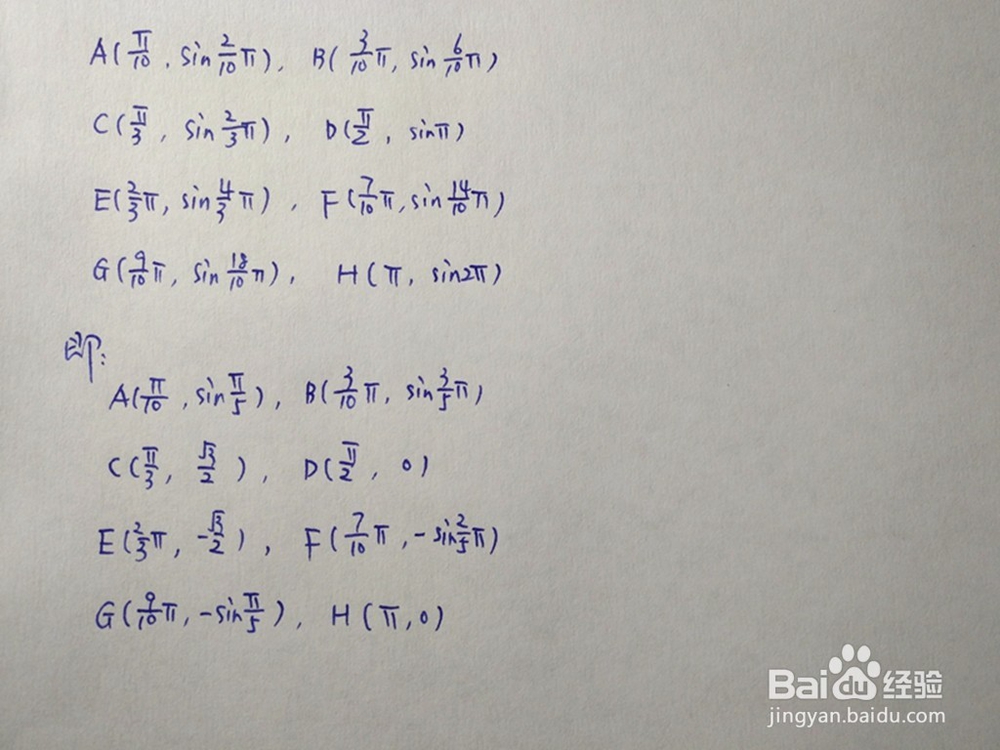 A(π/10, sin 2/10 π), B(3/10 π, sin 6/10 π)
C(π/3, sin 2/3 π), D(π/2, sinπ)
E(2/3 π, sin 4/3 π), F(7/10 π, sin 14/10 π)
G(9/10 π, sin 18/10 π), H(π, sin2π)
即:
A(π/10, sin π/5), B(3/10 π, sin 3/5 π)
C(π/3, √3/2), D(π/2, 0)
E(2/3 π, -√3/2), F(7/10 π, -sin 2/5 π)
G(9/10 π, -sin π/5), H(π, 0)
Baidu 经验
jingyan.baidu.com